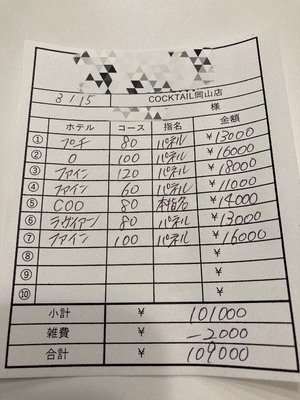 8/15 COCKTAIL岡山店
様
ホテル コース 指名 金額
① プチ 80 パネル ¥13000
② O 100 パネル ¥16000
③ ファイン 120 パネル ¥18000
④ ファイン 60 パネル ¥11000
⑤ COO 80 本指名 ¥14000
⑥ ラヴィアン 80 パネル ¥13000
⑦ ファイン 100 パネル ¥16000
⑧ ¥
⑨ ¥
⑩ ¥
小計 ¥ 101000
雑費 ¥ -2000
合計 ¥ 109000